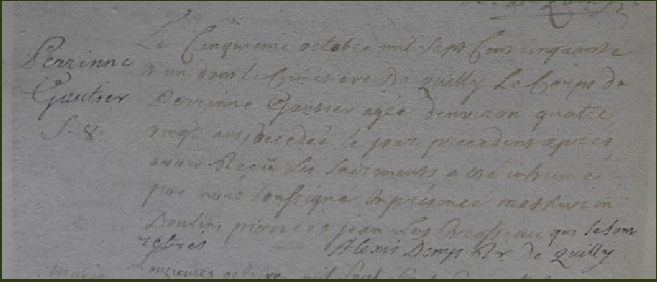 Perrinne
Gautier
S. &.
Le Cinquieme octobre mil sept Cent cinquante
et un dans le Cimetiere De quilly Le Corps de
Perrinne Gautier agée denviron quatre
vingt ans decedée le jour precedent aprés
avoir Reçü Les sacrements a été inhumé
par nous soussigné En presence mathurin
pierre et jean Les qui se sont
retirés Alexis Recr de quilly
octobre mil sept